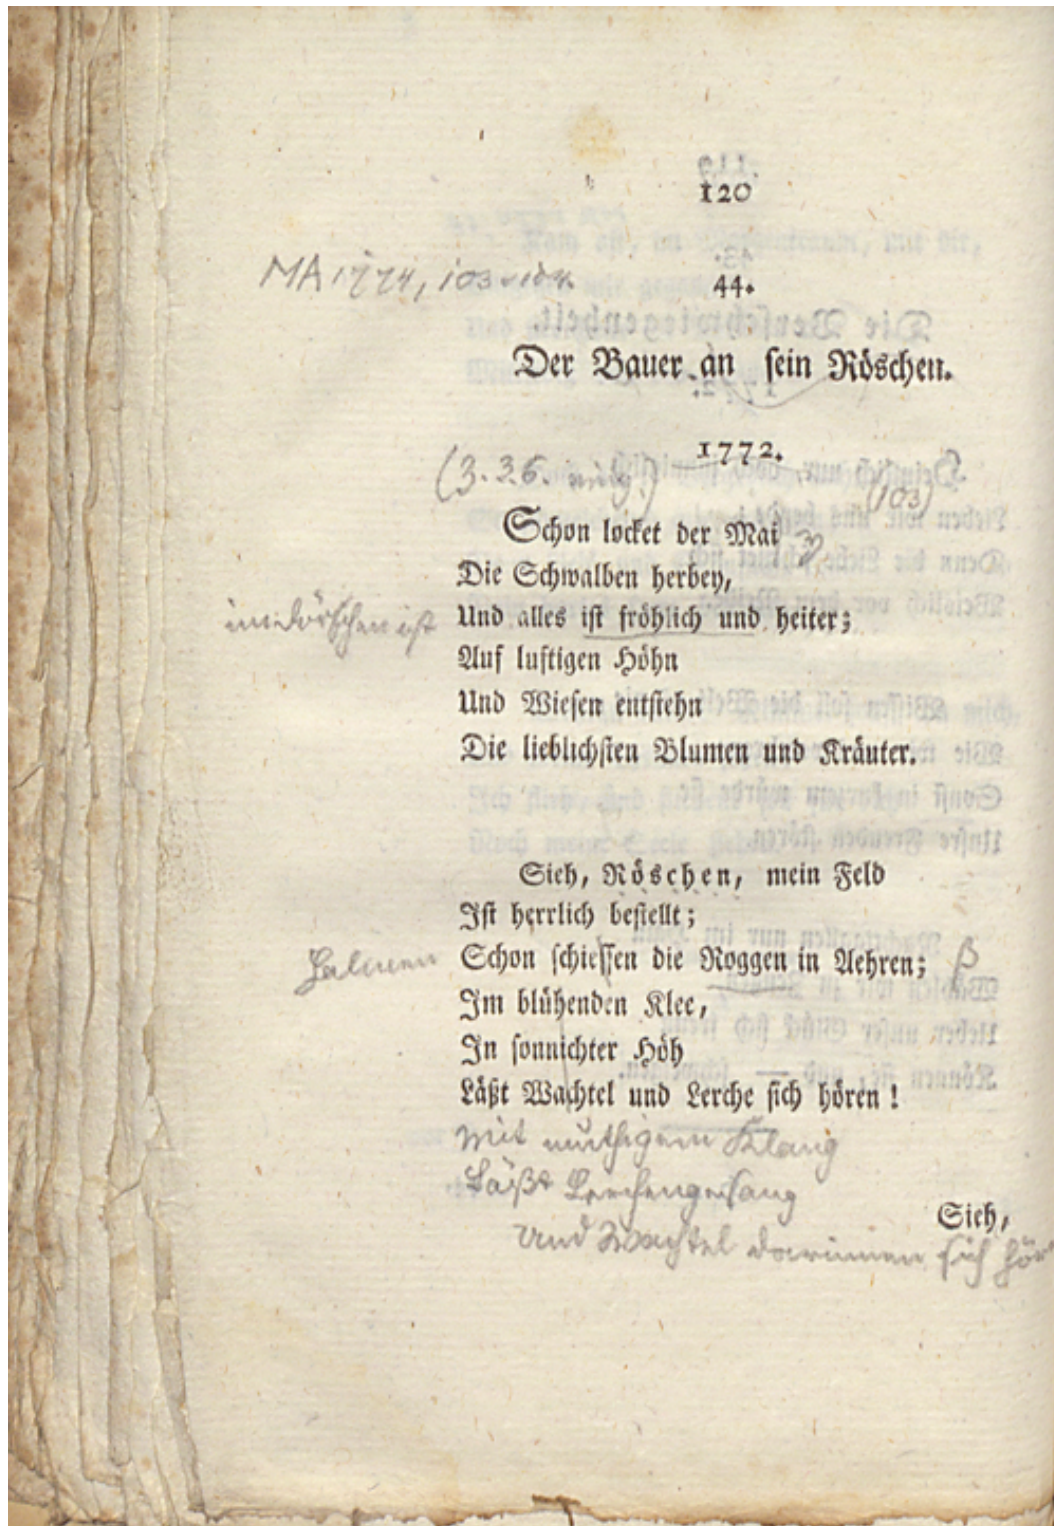 120
MA 1774, 103
44.
Der Bauer an sein Röschen.
1772.
(3. 3. 6.
(103)
Schon locket der Mai
Die Schwalben herbey,
im Dörfchen ist Und alles ist fröhlich und heiter;
Auf luftigen Höhn
Und Wiesen entstehn
Die lieblichsten Blumen und Kräuter.
Sieh, Röschen, mein Feld
Ist herrlich bestellt;
Halmen Schon schiessen die Roggen in Aehren; ß
Im blühenden Klee,
In sonnichter Höh
Läßt Wachtel und Lerche sich hören!
Mit muthigem Klang
Läßt Lerchengesang
Sieh,
Und Wachtel darinnen sich hör